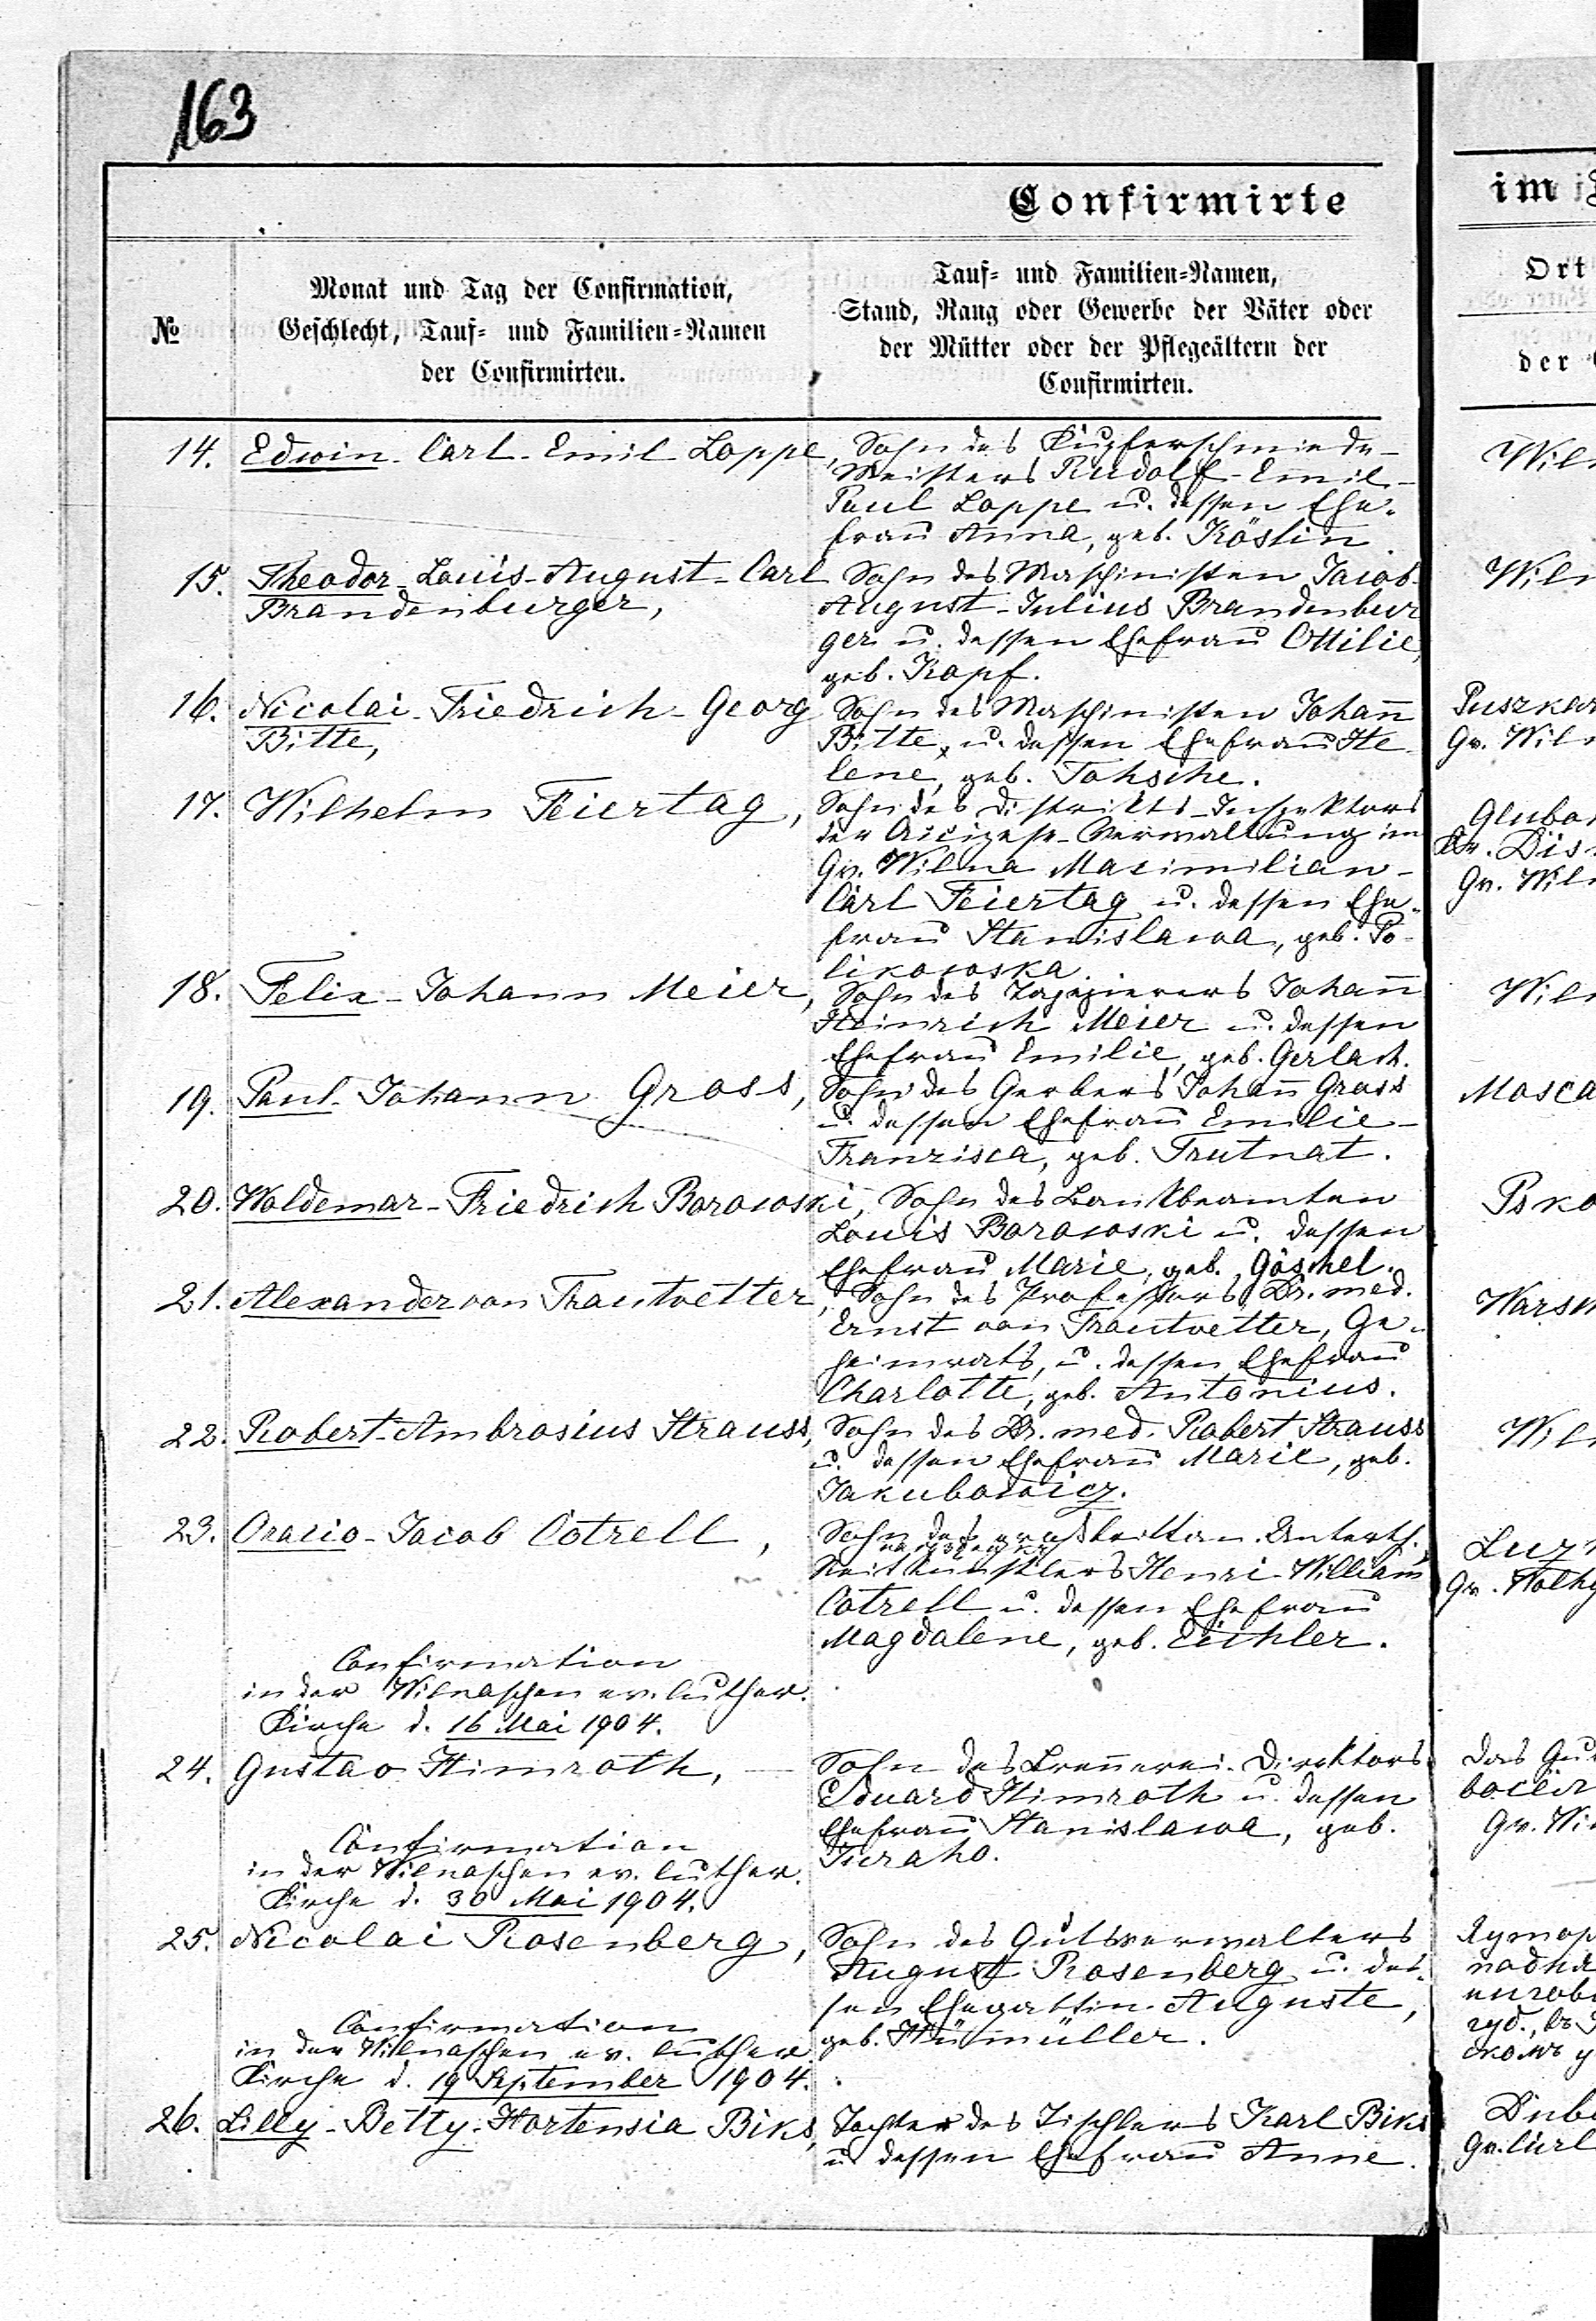 163
Confirmirte
im
№
Monat und Tag der Confirmation,
Geschlecht, Tauf- und Familien-Namen
der Confirmirten.
Tauf- und Familien-Namen,
Stand, Rang oder Gewerbe der Väter oder
der Mütter oder der Pflegeältern der
Confirmirten.
Ort
der
14. Edwin-Carl-Emil Loppe, Sohn des Kupferschmiede-
Meisters Rudolf-Emil-
Paul Loppe u. dessen Ehe-
frau Anna, geb. Köslin.
15. Theodor-Louis-August-Carl
Brandenburger,
Sohn des Maschinisten Jacob-
August-Julius Brandenbur
ger u. dessen Ehefrau Ottilie,
geb. Kopf.
16. Nicolai-Friedrich-Georg
Bitte,
Sohn des Maschinisten Johann
Bitte, u. dessen Ehefrau He-
lene, geb. Tohsche.
Gv.
17. Wilhelm Feiertag,
Sohn des Distrikts-Inspektors
der Accizese-Verwaltung im
Gv. Wilna Maximilian-
Carl Feiertag u. dessen Ehe-
frau Stanislawa, geb. Po-
likowska.
Gv.
18. Felix-Johann Meier,
Sohn des Tapezierers Johann
Heinrich Meier u. dessen
Ehefrau Emilie, geb. Gerlach.
19. Paul-Johann Gross,
Sohn des Gerbers Johann Gross
u. dessen Ehefrau Emilie-
Franzisca, geb. Trutnat.
20. Woldemar-Friedrich Borowski, Sohn des Bankbeamten
Louis Borowski u. dessen
Ehefrau Marie, geb. Göschel.
21. Alexander von Trautvetter, Sohn des Professors Dr. med.
Ernst von Trautvetter, Ge-
heimrats, u. dessen Ehefrau
Charlotte, geb. Antonius.
22. Robert-Ambrosius Strauss,
Sohn des Dr. med. Robert Strauss
u. dessen Ehefrau Marie, geb.
Jakubowicz.
23. Oracio-Jacob Cotrell,
Sohn des Unterth.
Henri-William
Cotrell u. dessen Ehefrau
Magdalene, geb. Eichler.
Gv.
Confirmation
in der Wilnaschen ev. luther.
Kirche d. 16 Mai 1904.
24. Gustav Himroth,
Sohn des Brennerei-Direktors
Eduard Himroth u. dessen
Ehefrau Stanislawa, geb.
Juraho.
das
Gv.
Confirmation
in der Wilnaschen ev. luther.
Kirche d. 30 Mai 1904.
25. Nicolai Rosenberg,
Sohn des Gutsverwalters
August Rosenberg u. des-
sen Ehegattin Auguste,
geb. Hümüller.
Confirmation
in der Wilnaschen ev. luther.
Kirche d. 19 September 1904.
26. Lilly-Betty-Hortensia Biks, Tochter des Tischlers Karl Biks
u. dessen Ehefrau Anne.